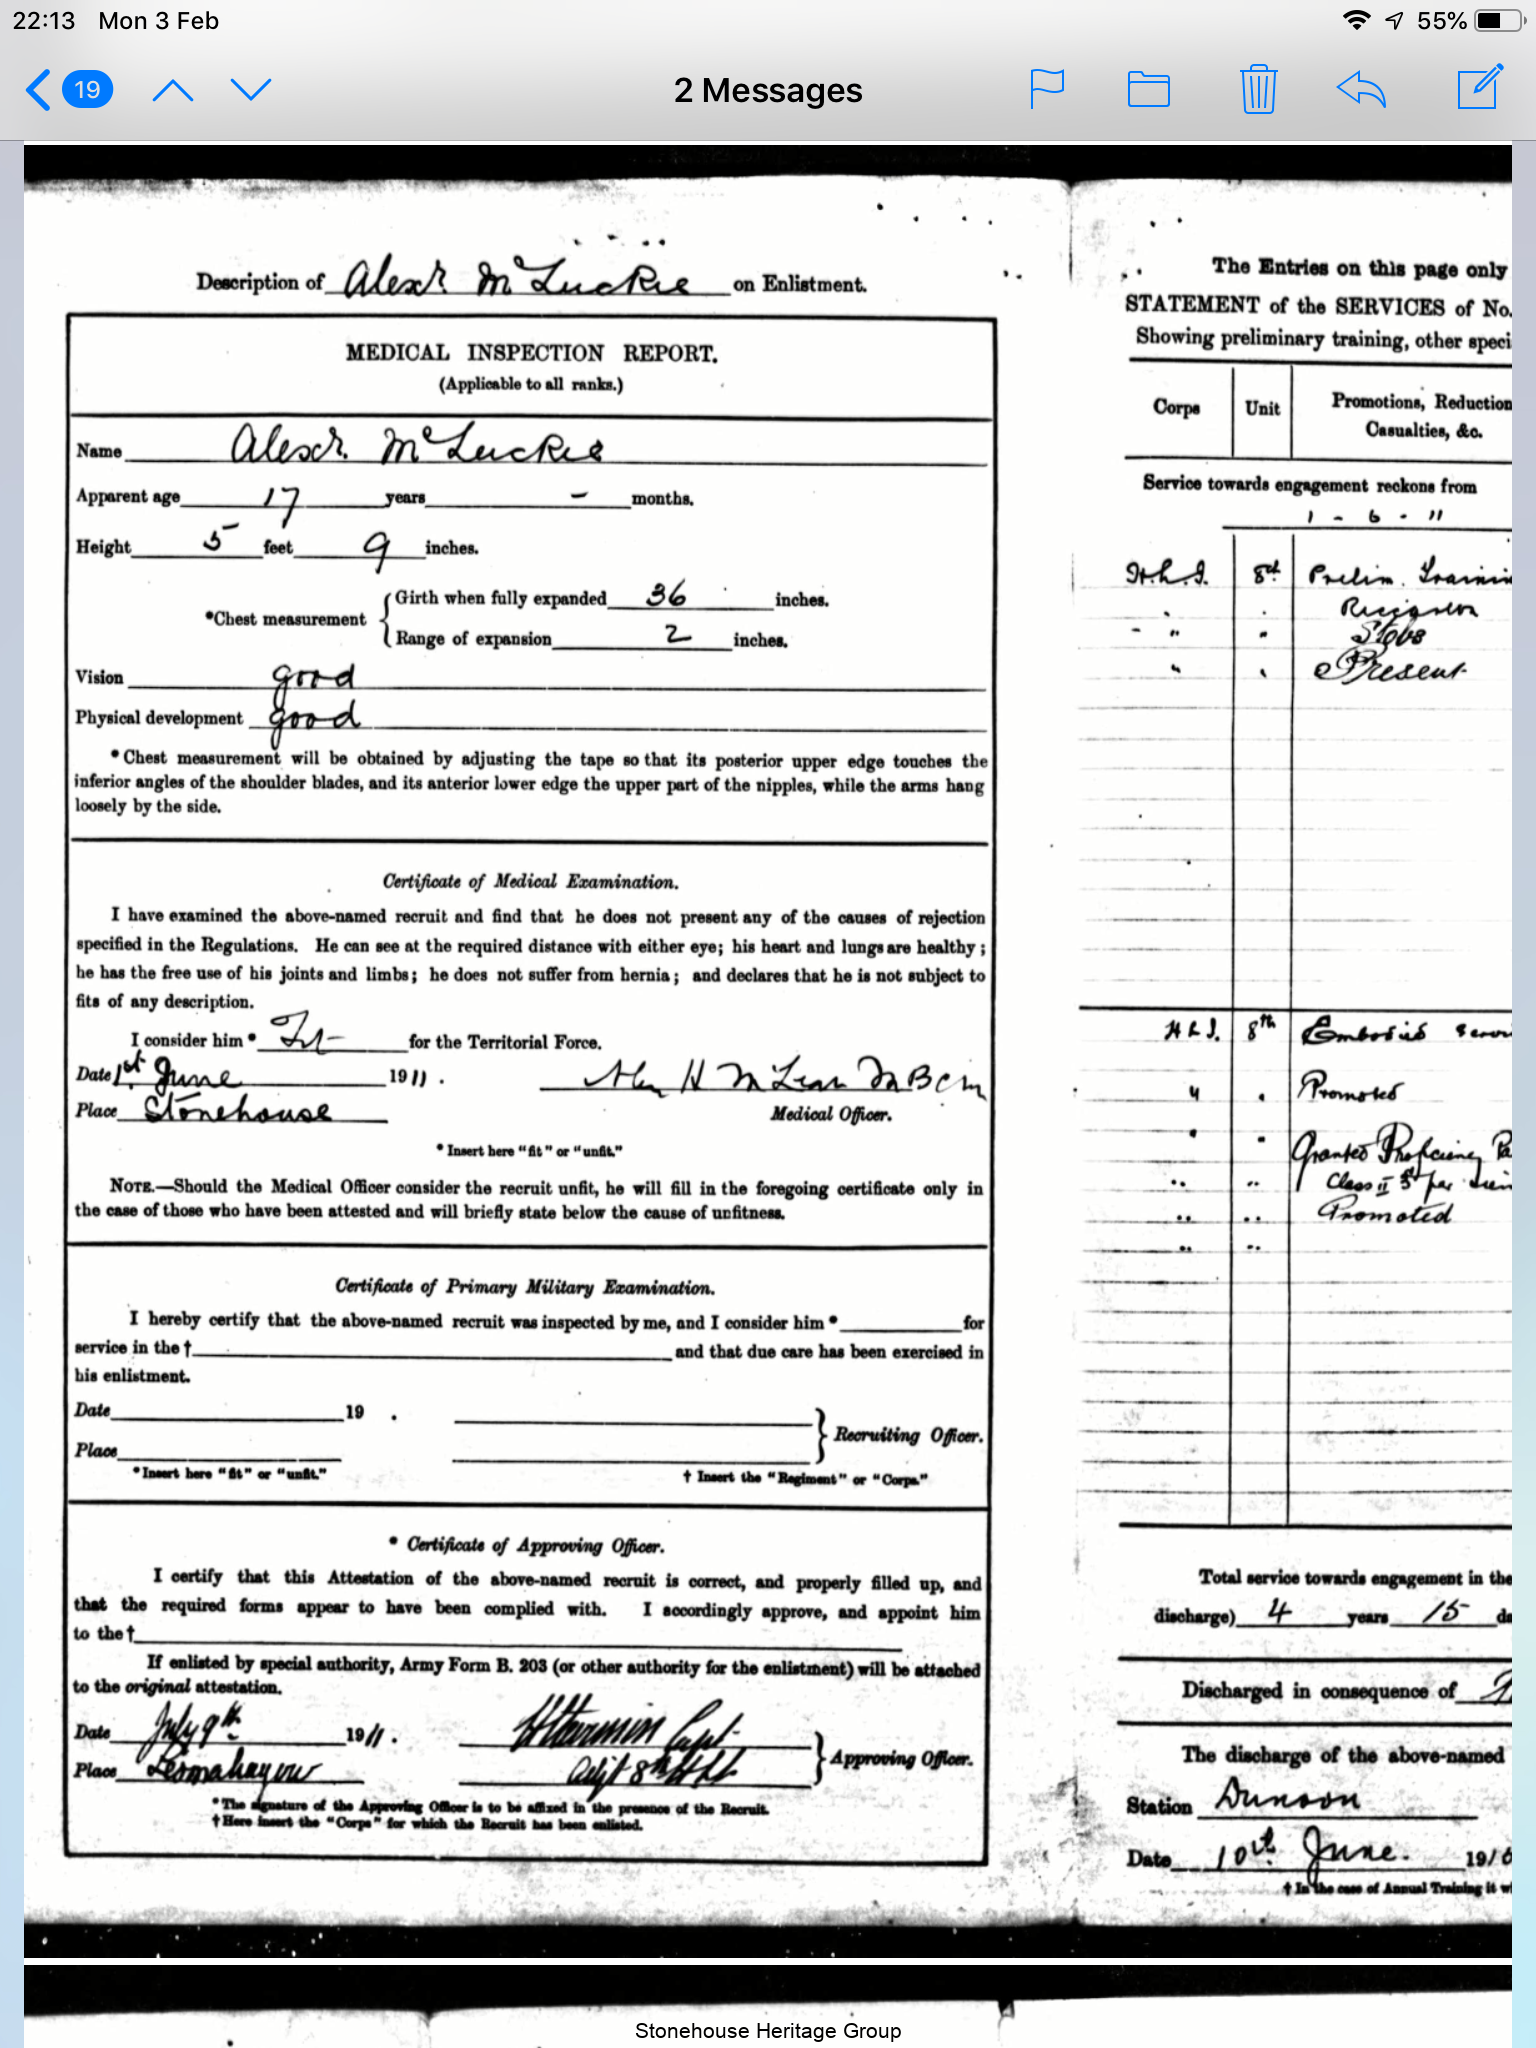 22:13 Mon 3 Feb 55%
19 2 Messages
Description of Alexr. McLuckie on Enlistment.
MEDICAL INSPECTION REPORT.
(Applicable to all ranks.)
Name Alexr. McLuckie
Apparent age 17 years - months.
Height 5 feet 9 inches.
*Chest measurement
Girth when fully expanded 36 inches.
Range of expansion 2 inches.
Vision good
Physical development good
*Chest measurement will be obtained by adjusting the tape so that its posterior upper edge touches the
inferior angles of the shoulder blades, and its anterior lower edge the upper part of the nipples, while the arms hang
loosely by the side.
Certificate of Medical Examination.
I have examined the above-named recruit and find that he does not present any of the causes of rejection
specified in the Regulations. He can see at the required distance with either eye; his heart and lungs are healthy;
he has the free use of his joints and limbs; he does not suffer from hernia; and declares that he is not subject to
fits of any description.
I consider him* Fit for the Territorial Force.
Date 1st June 1911. Alex H McLean MBCM
Place Stonehouse Medical Officer.
*Insert here "fit" or "unfit."
NOTE.—Should the Medical Officer consider the recruit unfit, he will fill in the foregoing certificate only in
the case of those who have been attested and will briefly state below the cause of unfitness.
Certificate of Primary Military Examination.
I hereby certify that the above-named recruit was inspected by me, and I consider him* for
service in the† and that due care has been exercised in
his enlistment.
Date 19 .
Recruiting Officer.
Place
*Insert here "fit" or "unfit." † Insert the "Regiment" or "Corps."
* Certificate of Approving Officer.
I certify that this Attestation of the above-named recruit is correct, and properly filled up, and
that the required forms appear to have been complied with. I accordingly approve, and appoint him
to the†
If enlisted by special authority, Army Form B. 203 (or other authority for the enlistment) will be attached
to the original attestation.
Date July 9th 1911. Capt
Place Lesmahagow Adjt 8th HLI Approving Officer.
*The signature of the Approving Officer is to be affixed in the presence of the Recruit.
†Here insert the "Corps" for which the Recruit has been enlisted.
The Entries on this page only
STATEMENT of the SERVICES of No.
Showing preliminary training, other speci
Corps Unit Promotions, Reduction
Casualties, &c.
Service towards engagement reckons from
1 - 6 - 11
H.L.I. 8th Prelim. Trainin
" " Stobs
" " Present
H L I. 8th Embodied servi
" " Promoted
" " Granted Proficiency Pa
" " Class II
" " Promoted
" "
Total service towards engagement in the
discharge) 4 years 15 da
Discharged in consequence of
The discharge of the above-named
Station Dunoon
Date 10th June. 1916
† In the case of Annual Training it wi
Stonehouse Heritage Group